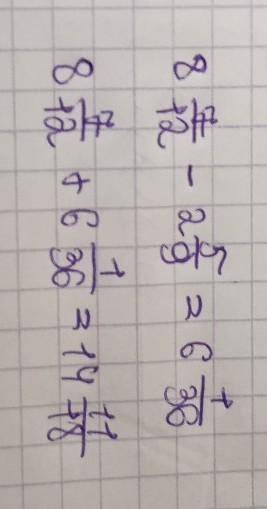 8 7/12 - 2 5/9 = 6 1/36
8 7/12 + 6 1/36 = 14 11/18